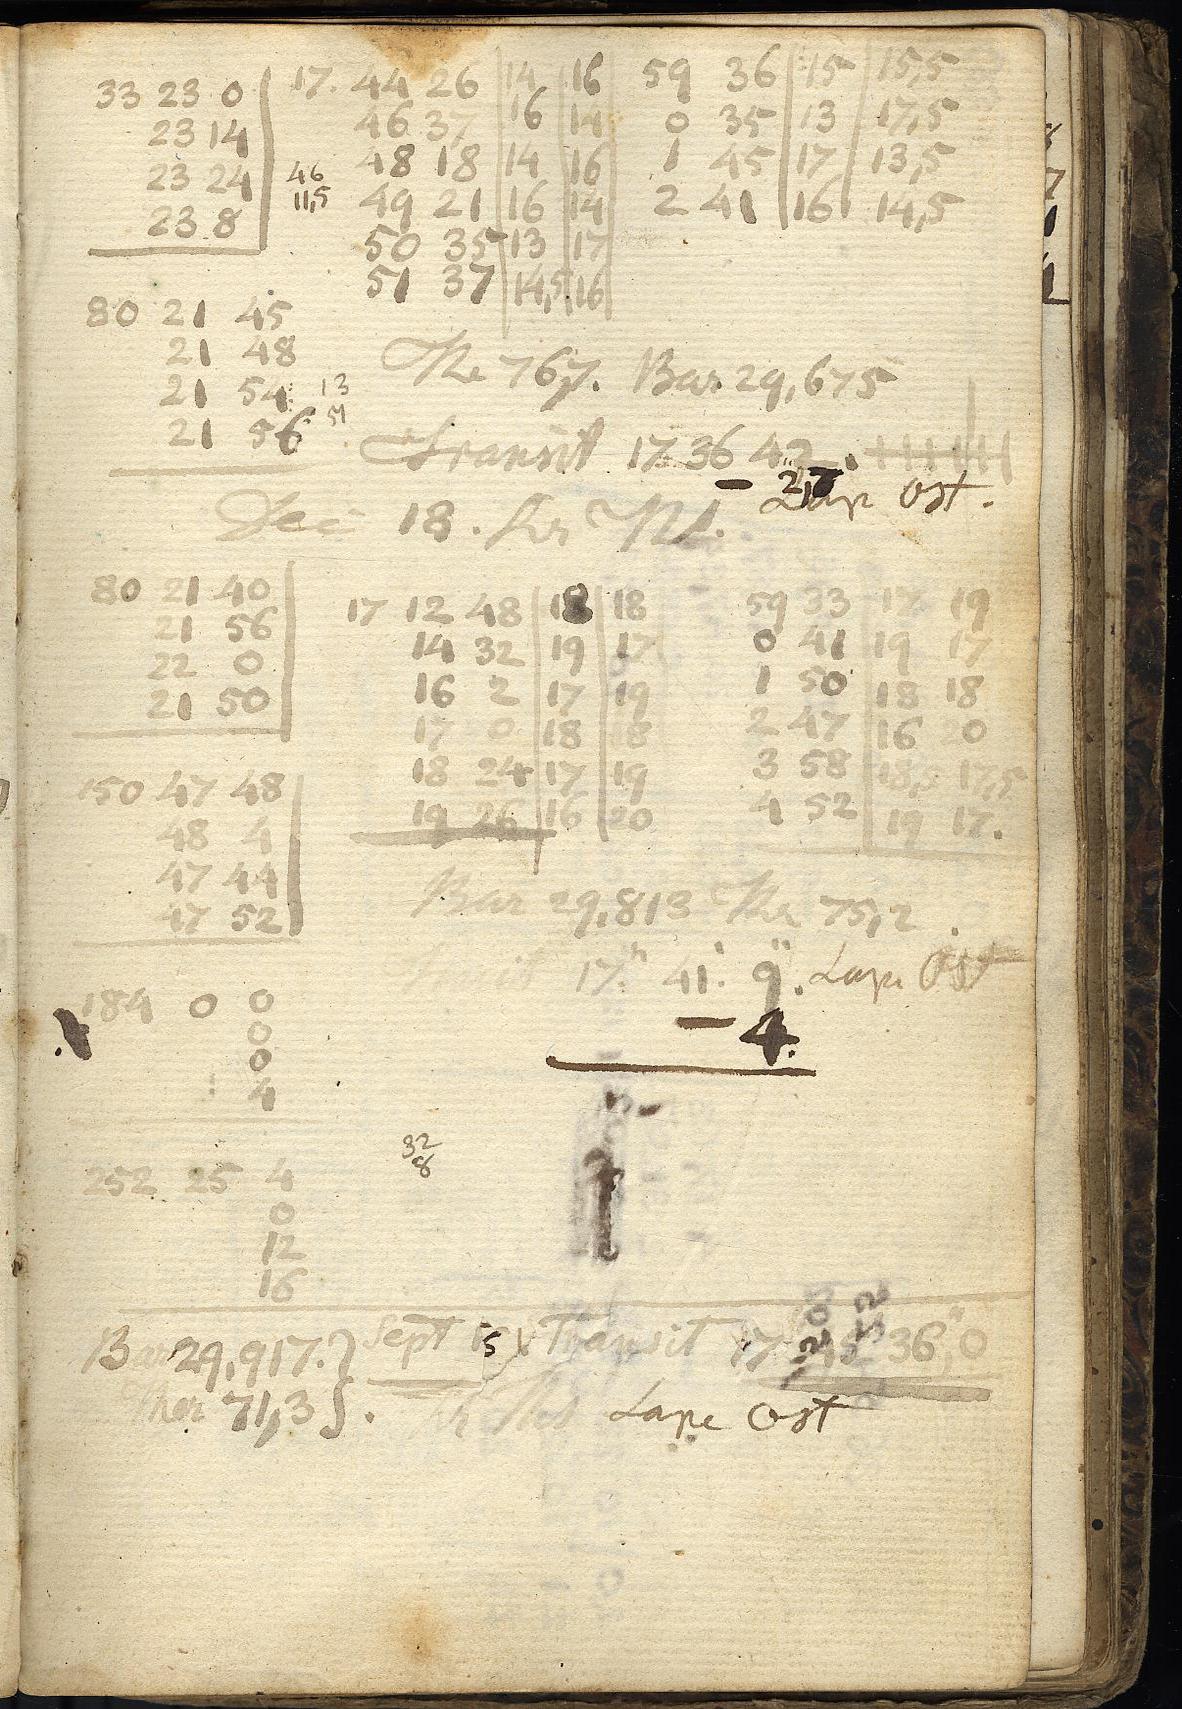 33 23 0 17. 44 26 14 16 59 36 15 15,5
23 14 46 37 16 14 0 35 13 17,5
23 24 46 48 18 14 16 1 45 17 13,5
23 8 11,5 49 21 16 14 2 41 16 14,5
50 35 13 17
51 37 14,5 16
80 21 45
21 48
21 54 13
21 56 51
The 76,7. Bar 29,675
Transit 17 36 42.
Lape Ost.
Dec 18.
80 21 40 17 12 48 18 18 59 33 17 19
21 56 14 32 19 17 0 41 19 17
22 0 16 2 17 19 1 50 18 18
21 50 17 0 18 18 2 47 16 20
18 24 17 19 3 58 18,5 17,5
19 26 16 20 4 52 19 17.
150 47 48
48 4
47 44
47 52
Bar 29,813 The 75,2.
Transit 17.h 41.' 9". Lape Ost
– 4.
184 0 0
0
0
4
32
8
252 25 4
0
12
16
Bar 29,917. } Sept 15 Transit 17 45 36",0
Ther 71,3 }. Lape Ost